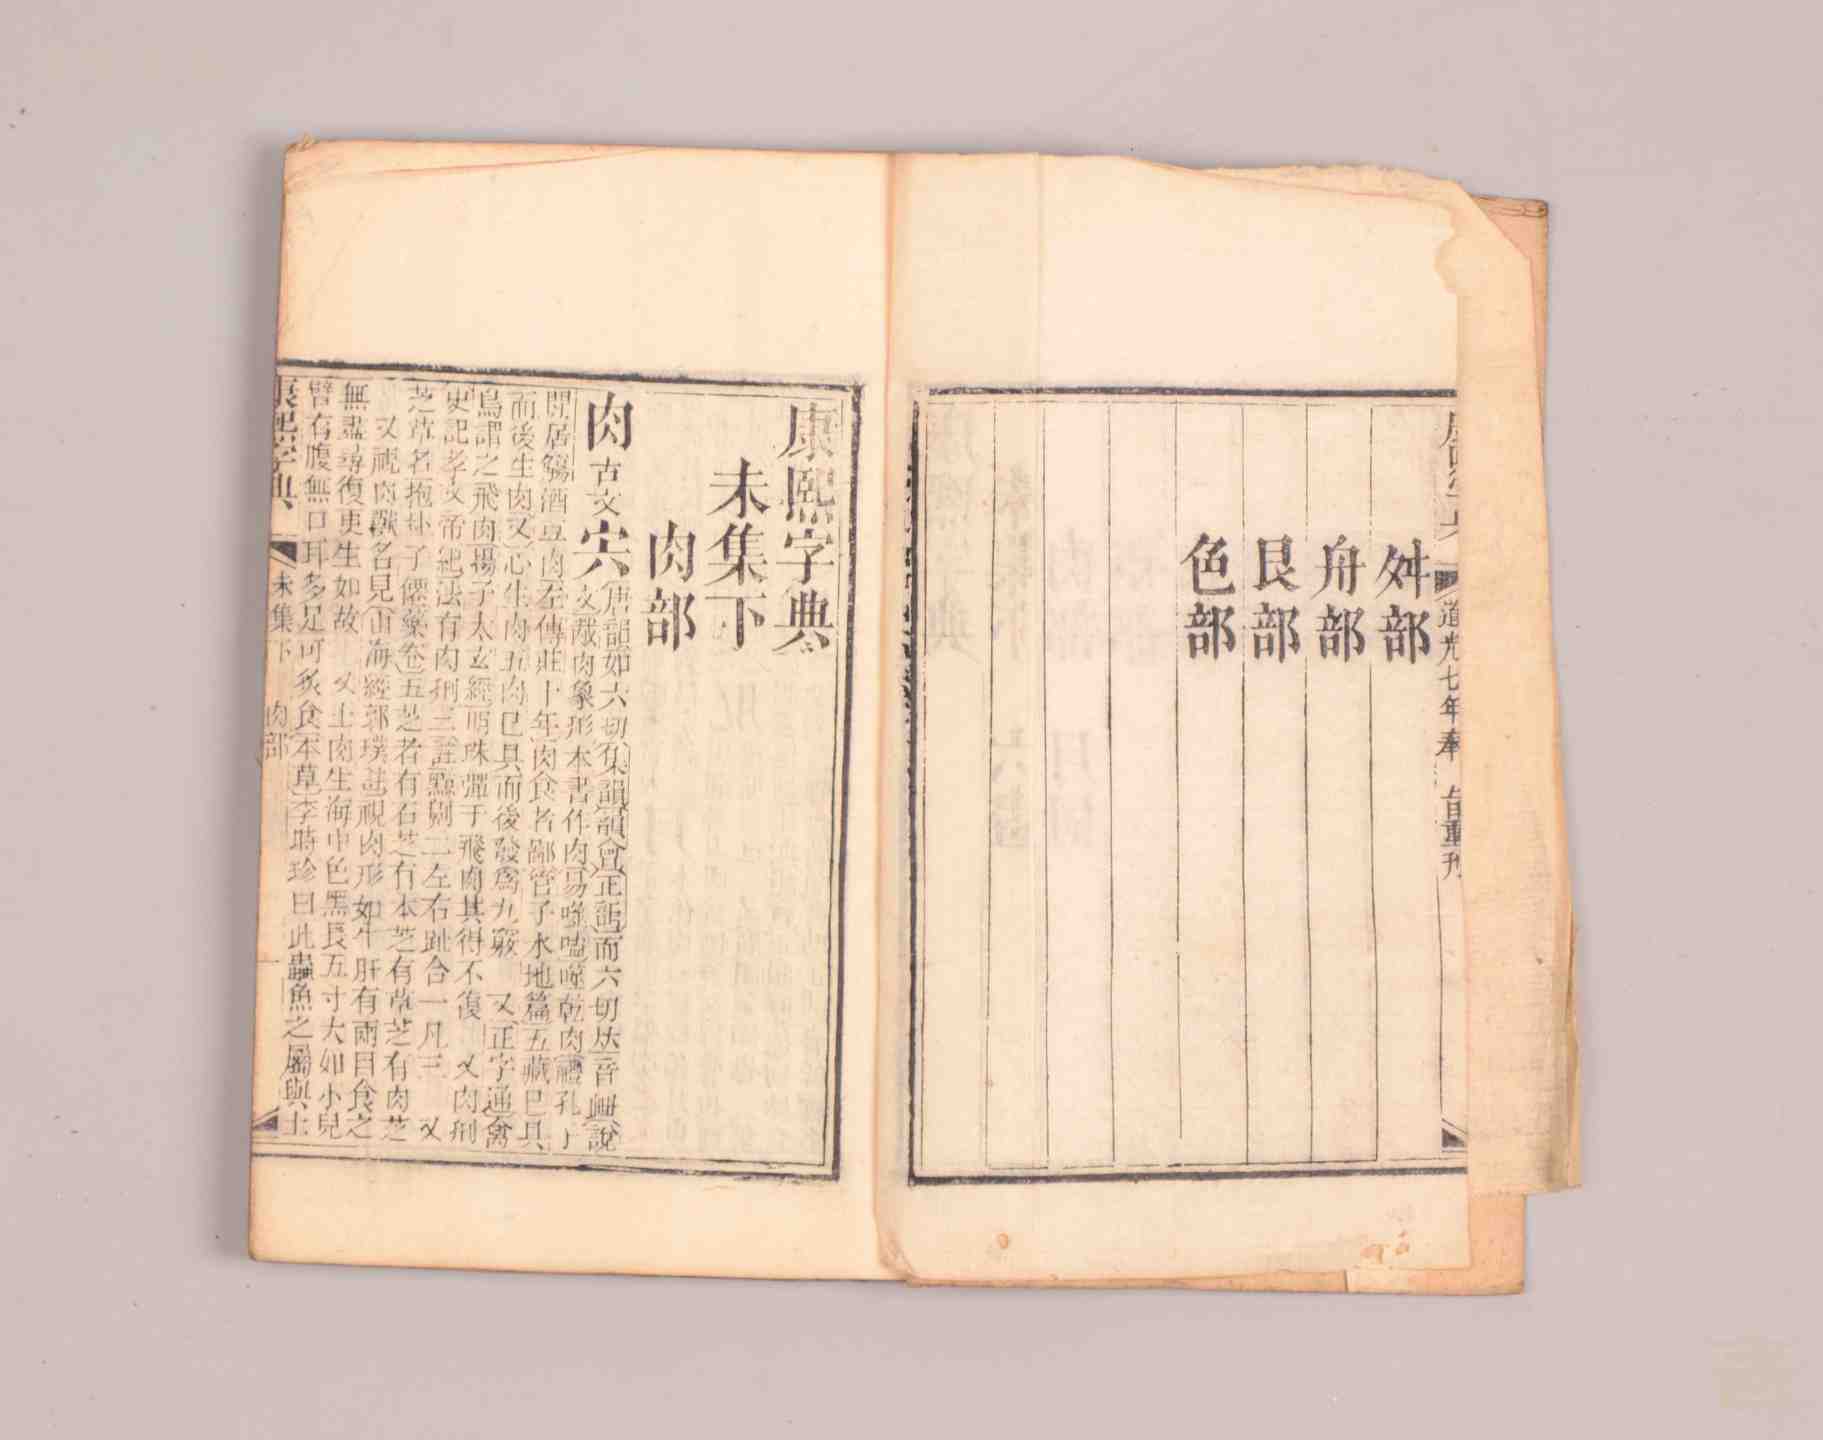 道光七年奉旨重刊
舛部
舟部
艮部
色部
康熙字典
未集下
肉部
肉 古文 宍 唐韻如六切集韻韻會正韻而六切𠀤音衄說
文胾肉象形本書作肉易噬嗑噬乾肉禮孔子
閒居觴酒豆肉左傳莊十年肉食者鄙管子水地篇五藏已具
而後生肉又心生肉五肉已具而後發爲九竅 又正字通禽
鳥謂之飛肉揚子太玄經明珠彈于飛肉其得不復 又肉刑
史記孝文帝紀法有肉刑三註黥劓二左右趾合一凡三 又
芝草名抱朴子僊藥卷五芝者有石芝有木芝有草芝有肉芝
又視肉獸名見山海經郭璞註視肉形如牛肝有兩目食之
無盡尋復更生如故 又土肉生海中色黑長五寸大如小兒
臂有腹無口耳多足可炙食本草李時珍曰此蟲魚之屬與土
康熙字典 未集下 肉部 一